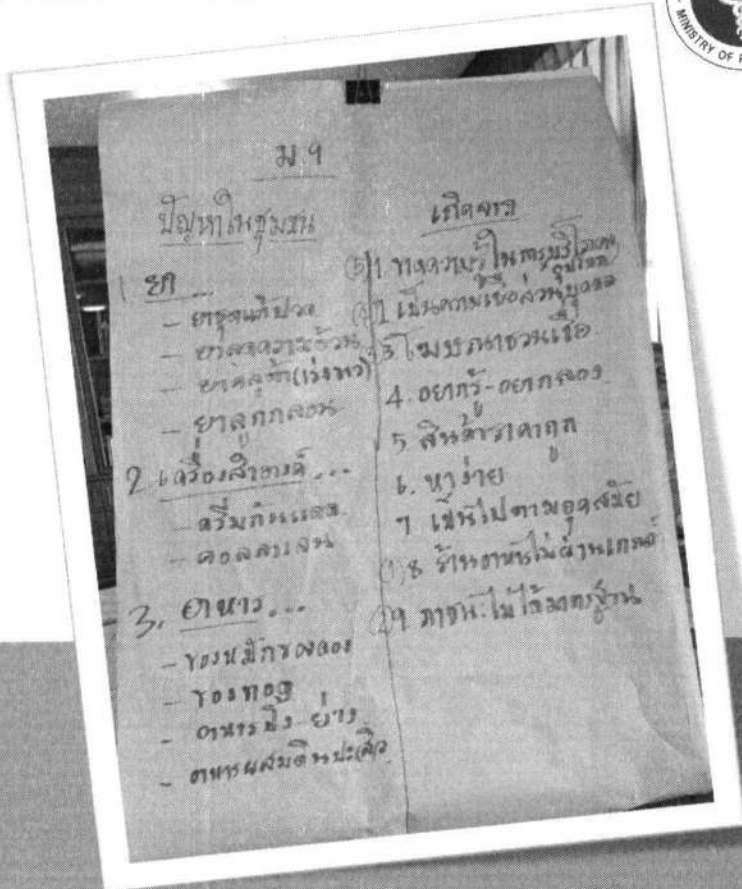 MINISTRY OF P
ม.9
ปัญหาในชุมชน
1 ยา...
- ยาชุดแก้ปวด
- ยาลดความอ้วน
- ยาลูกกลอน
2 เครื่องสำอางค์...
- ครีมกันแดด
- คอลลาเจน
3. อาหาร...
- ของหมักของดอง
- ของทอด
- อาหารปิ้ง-ย่าง
- อาหารผสมดินประสิว
เกิดจาก
(5) 1. ขาดความรู้ในการบริโภค
2 เป็นความเชื่อส่วนบุคคล
3 โฆษณาชวนเชื่อ
4. อยากรู้-อยากลอง
5 สินค้าราคาถูก
6. หาง่าย
7 เป็นไปตามยุคสมัย
(1) 8 ร้านอาหารไม่ผ่านเกณฑ์
(2) 9 ภาชนะไม่ได้มาตรฐาน